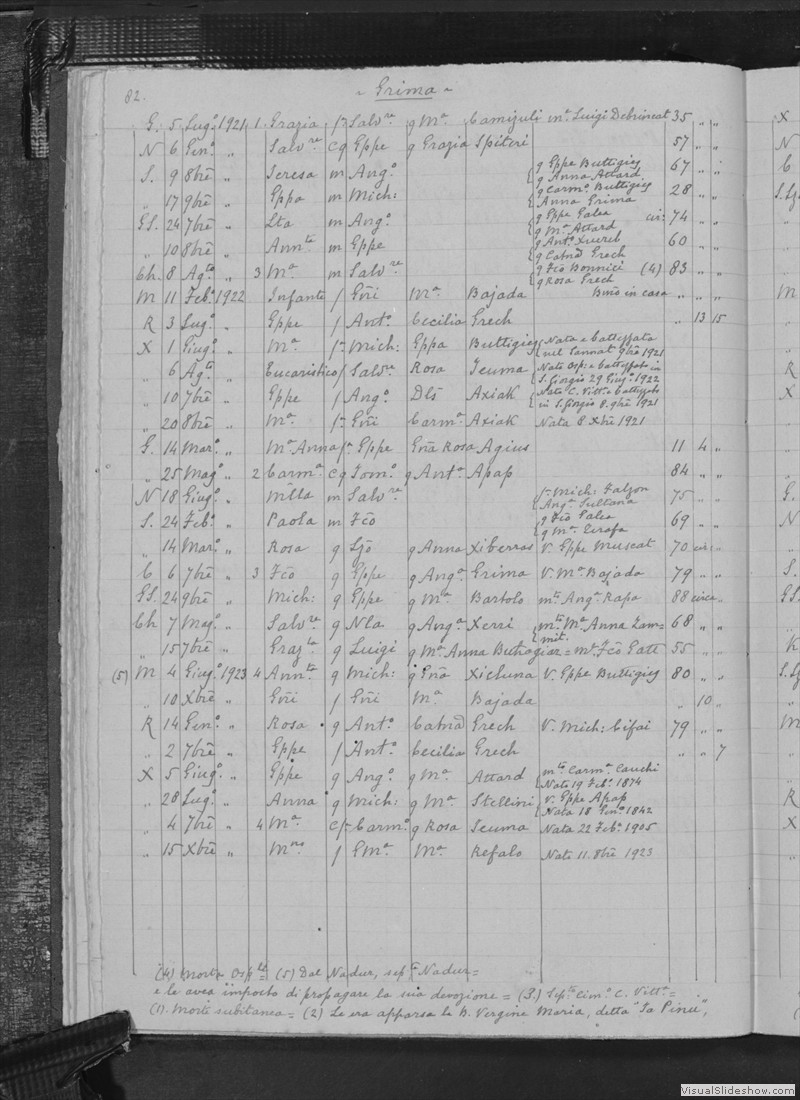 82. - Grima -
G. 5 Lugº 1921 1 Grazia fª Salvre g Mª Camijuli mª Luigi Debrincat 35 " "
N 6 Genº " Salvre cg Eppe g Grazia Spiteri 57 " "
S. 9 8bre " Teresa m Angº { g Eppe Buttigieg 67 " "
g Anna Attard
" 17 9bre " Eppa m Mich: { g Carmº Buttigieg 28 " "
Anna Grima
GS. 24 7bre " Lta m Angº { g Eppe Galea cir: 74 " "
g Mª Attard
" 10 8bre " Annta m Eppe { g Antº Xuereb 60 " "
g Catnª Grech
Ch. 8 Agto " 3 Mª m Salvre { g Fcõ Bonnici (4) 83 " "
g Rosa Grech
M 11 Febº 1922 Infante f Gñi Mª Bajada Bmõ in casa " " "
R 3 Lugº " Eppe f Antº Cecilia Grech " 13 15
X 1 Giugº " Mª fª Mich: Eppa Buttigieg { Nata e battezzata
nel Sannat 9bre 1921
" 6 Agto " Eucaristico f Salvre Rosa Teuma { Nato Osp: e battezzato in
S. Giorgio 29 Giugº 1922
" 10 7bre " Eppe f Angº Dls Axiak { Nato C. Vittª e battezzato
in S. Giorgio 8. 9bre 1921
" 20 8bre " Mª fª Gñi Carmª Axiak Nata 8 Xbre 1921
G. 14 Marº " Mª Anna fª Eppe Gña Rosa Agius 11 4 "
" 25 Magº " 2 Carmª cg Tomº g Antª Apap 84 " "
N 18 Giugº " Mlla m Salvre { V. Mich: Falzon 75 " "
Angª Sultana
S. 24 Febº " Paola m Fcõ { g Fcõ Galea 69 " "
g Mª Zerafa
" 14 Marº " Rosa g Ljõ g Anna Xiberras V. Eppe Muscat 70 cir: "
C 6 7bre " 3 Fcõ g Eppe g Angª Grima V. Mª Bajada 79 " "
GS. 24 9bre " Mich: g Eppe g Mª Bartolo mto Angª Rapa 88 circa "
Ch. 7 Magº " Salvre g Nla g Angª Xerri { mto Mª Anna Zam= 68 " "
mit.
" 15 7bre " Grazta g Luigi g Mª Anna Buttigieg = mª Fcõ Gatt 55 " "
(5) M 4 Giugº 1923 4 Annta g Mich: g Gña Xicluna V. Eppe Buttigieg 80 " "
" 10 Xbre " Gñi f Gñi Mª Bajada " 10 "
R 14 Genº " Rosa g Antº Catnª Grech V. Mich: Cifai 79 " "
" 2 7bre " Eppe f Antº Cecilia Grech " " 7
X 5 Giugº " Eppe g Angº g Mª Attard { mto Carmª Cauchi
Nato 19 Febº 1874
" 28 Lugº " Anna g Mich: g Mª Stellini { V. Eppe Apap
Nata 18 Genº 1842
" 4 7bre " 4 Mª cfª Carmº g Rosa Teuma Nata 22 Febº 1905
" 15 Xbre " Mro f Emº Mª Refalo Nato 11. 8bre 1923
(4) Morta Osple = (5) Dal Nadur, septa Nadur =
e le avea imposto di propagare la sua devozione = (3.) Septo Cimº C. Vittª =
(1). Morte subitanea = (2) Le era apparsa la B. Vergine Maria, detta "Ta Pinu",
X
N
C
S. Lj
M
R
X
G.
N
S.
GS.
K
S. Lj
M
R
X
VisualSlideshow.com